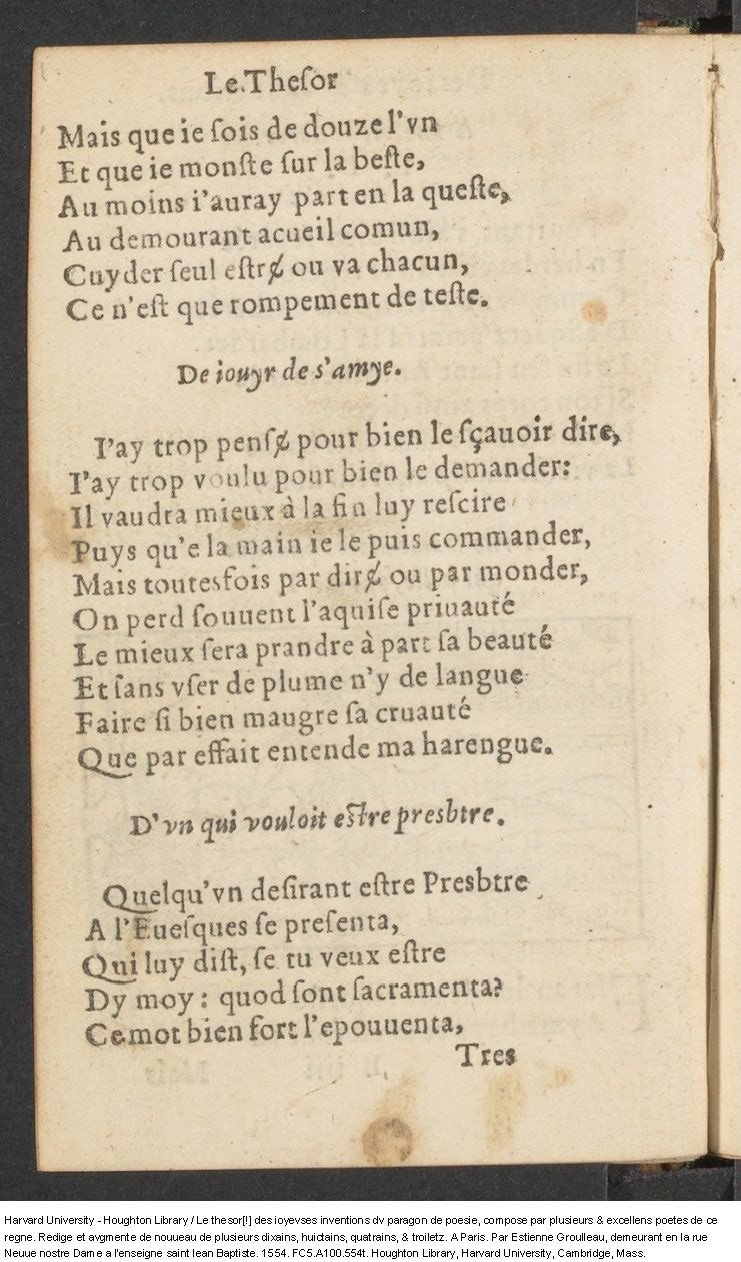 Le Theſor
Mais que ie ſois de douze l'vn
Et que ie monſte ſur la beſte,
Au moins i'auray part en la queſte,
Au demourant acueil comun,
Cuyder ſeul eſtrɇ ou va chacun,
Ce n'eſt que rompement de teſte.
De iouyr de s'amye.
I'ay trop penſɇ pour bien le ſçauoir dire,
I'ay trop voulu pour bien le demander:
Il vaudra mieux à la fin luy reſcire
Puys qu'e la main ie le puis commander,
Mais toutesfois par dirɇ ou par monder,
On perd ſouuent l'aquiſe priuauté
Le mieux ſera prandre à part ſa beauté
Et ſans vſer de plume n'y de langue
Faire ſi bien maugre ſa cruauté
Que par effait entende ma harengue.
D'vn qui vouloit eſtre presbtre.
Quelqu'vn deſirant eſtre Presbtre
A l'Eueſques ſe preſenta,
Qui luy diſt, ſe tu veux eſtre
Dy moy: quod ſont ſacramenta?
Ce mot bien fort l'epouuenta,
Tres
Harvard University - Houghton Library / Le thesor[!] des ioyevses inventions dv paragon de poesie, compose par plusieurs & excellens poetes de ce
regne. Redige et avgmente de nouueau de plusieurs dixains, huictains, quatrains, & troiletz. A Paris. Par Estienne Groulleau, demeurant en la rue
Neuue nostre Dame a l'enseigne saint Iean Baptiste. 1554. FC5.A100.554t. Houghton Library, Harvard University, Cambridge, Mass.